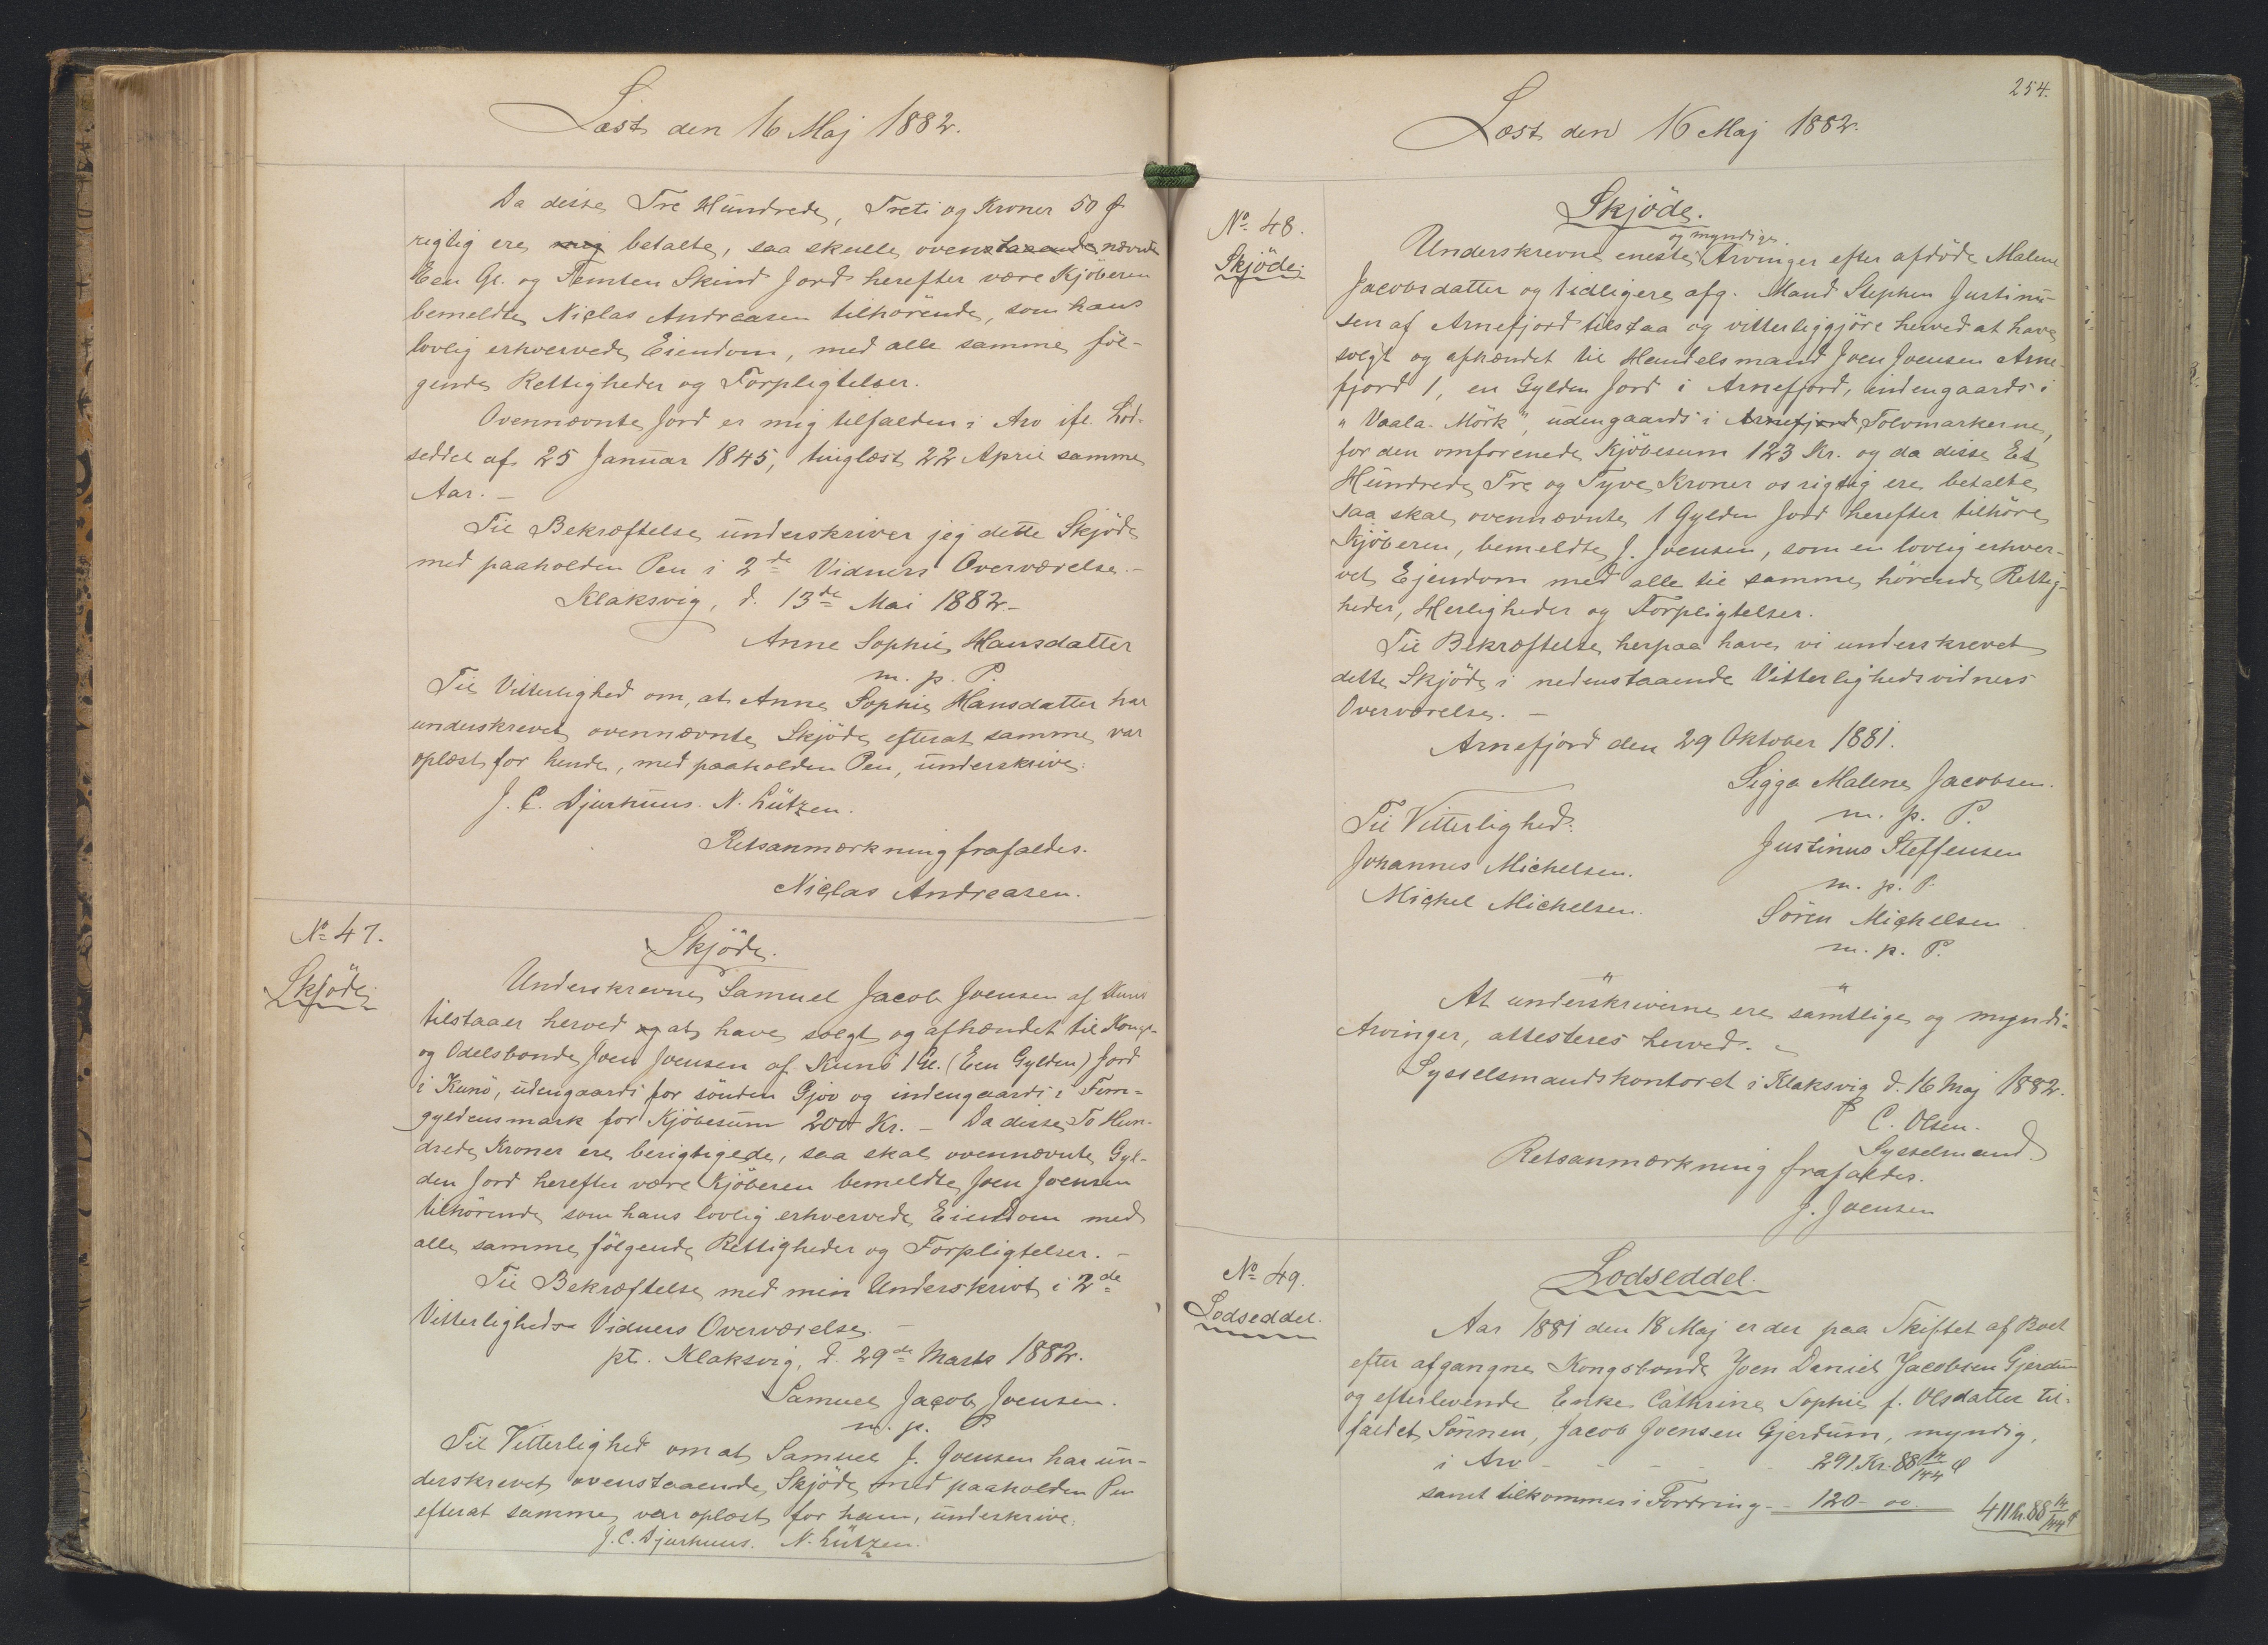 Læst den 16 Maj 1882.
Da disse Tre Hundrede, Treti og Kroner 50 Ø
rigtig ere mig betalte, saa skulle ovenstaaende nævnte
Een Gl. og Femten Skind Jord herefter være Kjöberen
bemeldte Niclas Andreasen tilhörende, som hans
lovlig erhvervede Eiendom, med alle samme föl-
gende Rettigheder og Forpligtelser.
Ovennævnte Jord er mig tilfalden i Arv ifl. Lod-
seddel af 25 Januar 1845, tinglæst 22 April samme
Aar. –
Til Bekræftelse underskriver jeg dette Skjöde
med paaholden Pen i 2de Vidners Overværelse. –
Klaksvig, d. 13de Mai 1882. –
Anne Sophie Hansdatter
m. p. P.
Til Vitterlighed om, at Anne Sophie Hansdatter har
underskrevet ovennævnte Skjöde efterat samme var
oplæst for hende, med paaholden Pen, underskrive:
J. C. Djurhuus. N. Lützen.
Retsanmærkning frafaldes.
Niclas Andreasen.
No 47.
Skjöde.
Skjöde.
Underskrevne Samuel Jacob Joensen af Kunö
tilstaaer herved og at have solgt og afhændet til Kongs-
og Odelsbonde Joen Joensen af Kunö 1 Gl. (Een Gylden) Jord
i Kunö, udengaards for sönden Gjov og indengaards i Fem-
gyldensmark for Kjöbesum 200 Kr. – Da disse To Hun-
drede Kroner ere berigtigede, saa skal ovennævnte Gyl-
den Jord herefter være Kjöberen bemeldte Joen Joensen
tilhörende som hans lovlig erhvervede Eiendom med
alle samme fölgende Rettigheder og Forpligtelser. –
Til Bekræftelse med min Underskrivt i 2de
Vitterligheds Vidners Overværelse. –
pt. Klaksvig, d. 29de Marts 1882.
Samuel Jacob Joensen.
m. p. P.
Til Vitterlighed om at Samuel J. Joensen har un-
derskrevet ovenstaaende Skjöde med paaholden Pen
efterat samme var oplæst for ham, underskrive:
J. C. Djurhuus. N. Lützen.
254.
Læst den 16 Maj 1882.
No 48.
Skjöde.
Skjöde.
og myndige
Underskrevne eneste Arvinger efter afdöde Malene
Jacobsdatter og tidligere afg. Mand Stephen Justinu-
sen af Arnefjord tilstaa og vitterliggjöre herved at have
solgt og afhændet til Handelsmand Joen Joensen Arne-
fjord 1, en Gylden Jord i Arnefjord, indengaards i
" Vaala-Mörk", udengaards i Arnefjord, Tolvmarkerne,
for den omforenede Kjöbesum 123 Kr. og da disse Et
Hundrede Tre og Tyve Kroner os rigtig ere betalte
saa skal ovennævnte 1 Gylden Jord herefter tilhöre
Kjöberen, bemeldte J. Joensen, som en lovlig erhver-
vet Ejendom med alle til samme hörende Rettig-
heder, Herligheder og Forpligtelser.
Til Bekræftelse herpaa have vi underskrevet
dette Skjöde i nedenstaaende Vitterlighedsvidners
Overværelse. –
Arnefjord den 29 Oktober 1881.
Sigga Malene Jacobsen.
m. p. P.
Til Vitterlighed:
Justinus Steffensen
Johannes Michelsen.
m. p. P.
Michel Michelsen.
Sören Michelsen
m. p. P.
At underskriverne ere samtlige og myndi-
Arvinger, attesteres herved. –
Sysselmandskontoret i Klaksvig d. 16 Maj 1882.
C. Olsen.
Sysselmand.
Retsanmærkning frafaldes.
J. Joensen
No 49.
Lodseddel.
Lodseddel.
Aar 1881 den 18 Maj er der paa Skiftet af Boet
efter afgangne Kongsbonde Joen Daniel Jacobsen Gjerdum
og efterlevende Enke Cathrine Sophie f. Olsdatter til-
faldet Sönnen, Jacob Joensen Gjerdum, myndig,
i Arv - - - - - 291 Kr. 88 14/144 Ø
samt tilkommer i Fordring - 120 - 00 411 Kr. 88 14/144 Ø